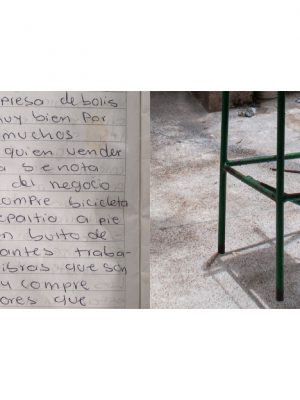 presa de bolis
muy bien por
muchos
quien vender
a se nota
del negocio
compre bicicleta
epartia a pie
n burto de
antes traba-
ibras que son
y compre
ores que